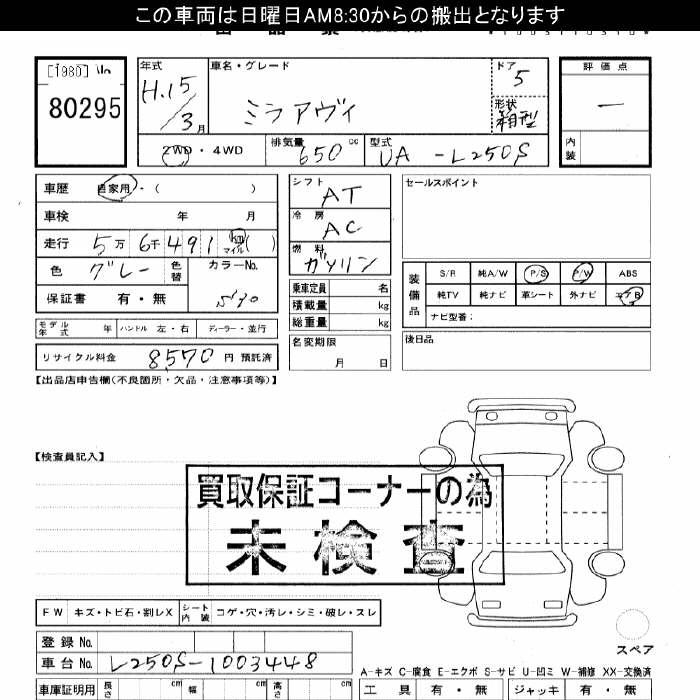 この車両は日曜日AM8:30からの搬出となります
[1980]
80295
年式
H.15/3月
車名・グレード
ミラアヴィ
ドア
5
形状
箱型
評価点
―
内装
2WD・4WD
排気量
650cc
型式
UA-L250S
車歴 自家用・( )
車検 年 月
走行 5万6千491km マイル( )
色 グレー 色替 カラーNo.
保証書 有・無 S70
シフト
AT
冷房
AC
燃料
ガソリン
乗車定員 名
積載量 kg
総重量 kg
名変期限
月 日
セールスポイント
装備品
S/R 純A/W P/S P/W ABS
純TV 純ナビ 革シート 外ナビ エアB
ナビ型番:
後日品
モデル年式 年 ハンドル 左・右 ディーラー・並行
リサイクル料金 8570 円 預託済
【出品店申告欄(不良箇所・欠品・注意事項等)】
【検査員記入】
買取保証コーナーの為
未検査
FW キズ・トビ石・割レX シート内装 コゲ・穴・汚レ・シミ・破レ・スレ
スペア
登録No.
車台No. L250S-1003448
A-キズ C-腐食 E-エクボ S-サビ U-凹ミ W-補修 XX-交換済
車庫証明用 長さ cm 幅 cm 高さ cm
工具 有・無 ジャッキ 有・無